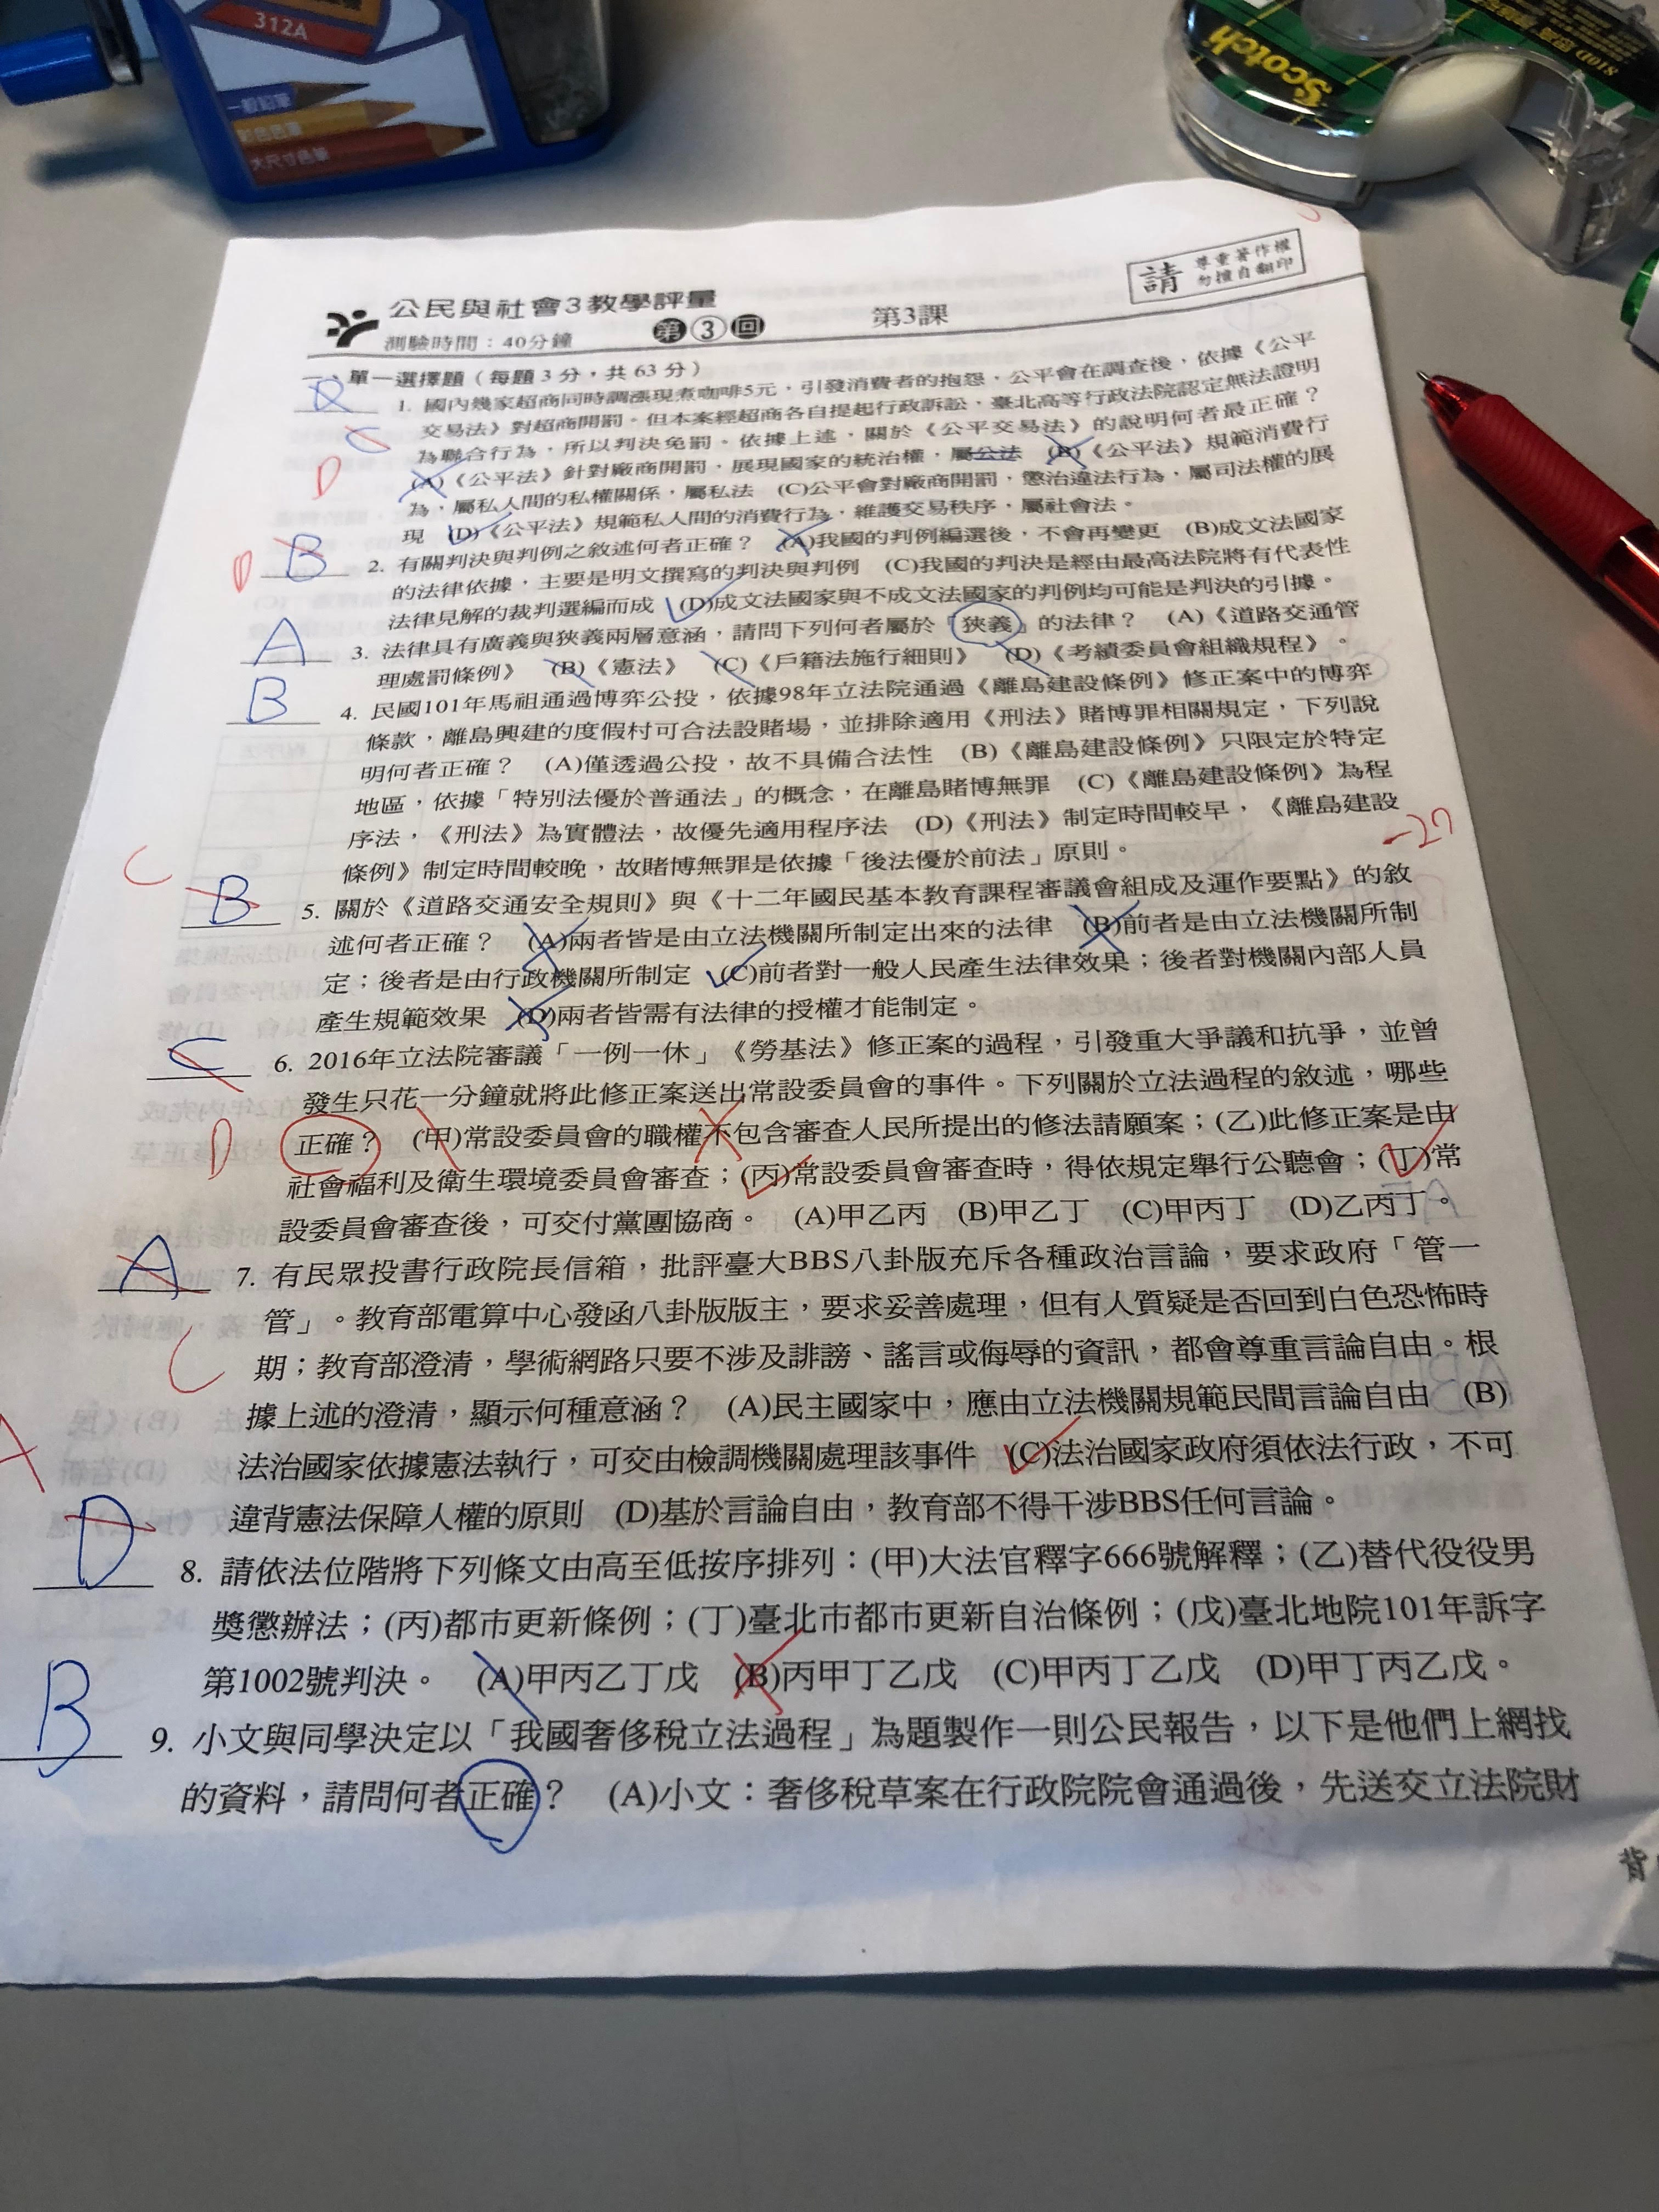 312A
一般鉛筆
彩色色筆
大尺寸色筆
Scotch
810D
公民與社會3教學評量
測驗時間：40分鐘
第3回
第3課
請 尊重著作權
勿擅自翻印
一、單一選擇題（每題3分，共63分）
1. 國內幾家超商同時調漲現煮咖啡5元，引發消費者的抱怨，公平會在調查後，依據《公平
C
交易法》對超商開罰。但本案經超商各自提起行政訴訟，臺北高等行政法院認定無法證明
為聯合行為，所以判決免罰。依據上述，關於《公平交易法》的說明何者最正確？
D
(A)《公平法》針對廠商開罰，展現國家的統治權，屬公法 (B)《公平法》規範消費行
為，屬私人間的私權關係，屬私法 (C)公平會對廠商開罰，懲治違法行為，屬司法權的展
現 (D)《公平法》規範私人間的消費行為，維護交易秩序，屬社會法。
D B 2. 有關判決與判例之敘述何者正確？ (A)我國的判例編選後，不會再變更 (B)成文法國家
的法律依據，主要是明文撰寫的判決與判例 (C)我國的判決是經由最高法院將有代表性
法律見解的裁判選編而成 (D)成文法國家與不成文法國家的判例均可能是判決的引據。
A 3. 法律具有廣義與狹義兩層意涵，請問下列何者屬於「狹義」的法律？ (A)《道路交通管
理處罰條例》 (B)《憲法》 (C)《戶籍法施行細則》 (D)《考績委員會組織規程》。
B 4. 民國101年馬祖通過博弈公投，依據98年立法院通過《離島建設條例》修正案中的博弈
條款，離島興建的度假村可合法設賭場，並排除適用《刑法》賭博罪相關規定，下列說
明何者正確？ (A)僅透過公投，故不具備合法性 (B)《離島建設條例》只限定於特定
地區，依據「特別法優於普通法」的概念，在離島賭博無罪 (C)《離島建設條例》為程
序法，《刑法》為實體法，故優先適用程序法 (D)《刑法》制定時間較早，《離島建設
條例》制定時間較晚，故賭博無罪是依據「後法優於前法」原則。
-27
C
B 5. 關於《道路交通安全規則》與《十二年國民基本教育課程審議會組成及運作要點》的敘
述何者正確？ (A)兩者皆是由立法機關所制定出來的法律 (B)前者是由立法機關所制
定；後者是由行政機關所制定 (C)前者對一般人民產生法律效果；後者對機關內部人員
產生規範效果 (D)兩者皆需有法律的授權才能制定。
C 6. 2016年立法院審議「一例一休」《勞基法》修正案的過程，引發重大爭議和抗爭，並曾
發生只花一分鐘就將此修正案送出常設委員會的事件。下列關於立法過程的敘述，哪些
D 正確？ (甲)常設委員會的職權不包含審查人民所提出的修法請願案；(乙)此修正案是由
社會福利及衛生環境委員會審查；(丙)常設委員會審查時，得依規定舉行公聽會；(丁)常
設委員會審查後，可交付黨團協商。 (A)甲乙丙 (B)甲乙丁 (C)甲丙丁 (D)乙丙丁。
A 7. 有民眾投書行政院長信箱，批評臺大BBS八卦版充斥各種政治言論，要求政府「管一
管」。教育部電算中心發函八卦版版主，要求妥善處理，但有人質疑是否回到白色恐怖時
C 期；教育部澄清，學術網路只要不涉及誹謗、謠言或侮辱的資訊，都會尊重言論自由。根
據上述的澄清，顯示何種意涵？ (A)民主國家中，應由立法機關規範民間言論自由 (B)
A 法治國家依據憲法執行，可交由檢調機關處理該事件 (C)法治國家政府須依法行政，不可
違背憲法保障人權的原則 (D)基於言論自由，教育部不得干涉BBS任何言論。
D 8. 請依法位階將下列條文由高至低按序排列：(甲)大法官釋字666號解釋；(乙)替代役役男
獎懲辦法；(丙)都市更新條例；(丁)臺北市都市更新自治條例；(戊)臺北地院101年訴字
第1002號判決。 (A)甲丙乙丁戊 (B)丙甲丁乙戊 (C)甲丙丁乙戊 (D)甲丁丙乙戊。
B 9. 小文與同學決定以「我國奢侈稅立法過程」為題製作一則公民報告，以下是他們上網找
的資料，請問何者正確？ (A)小文：奢侈稅草案在行政院院會通過後，先送交立法院財
背